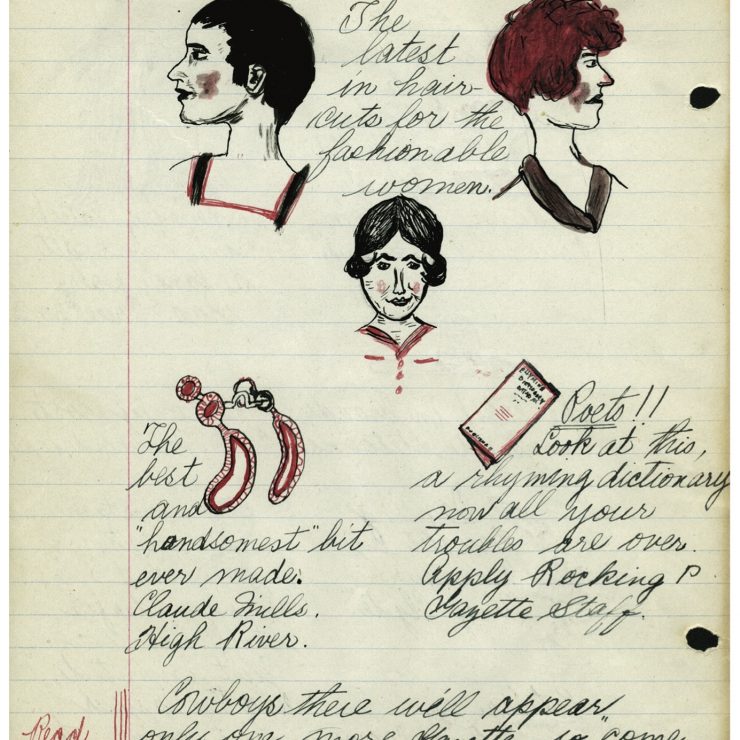 The
latest
in hair-
cuts for the
fashionable
women.
The
best
and
"handsomest" bit
ever made.
Claude Mills.
High River.
RHYMING
DICTIONARY
Poets!!
Look at this,
a rhyming dictionary
now all your
troubles are over.
Apply Rocking P
Gazette Staff.
Read
Cowboys there we'll appear
only one more Gazette so "come